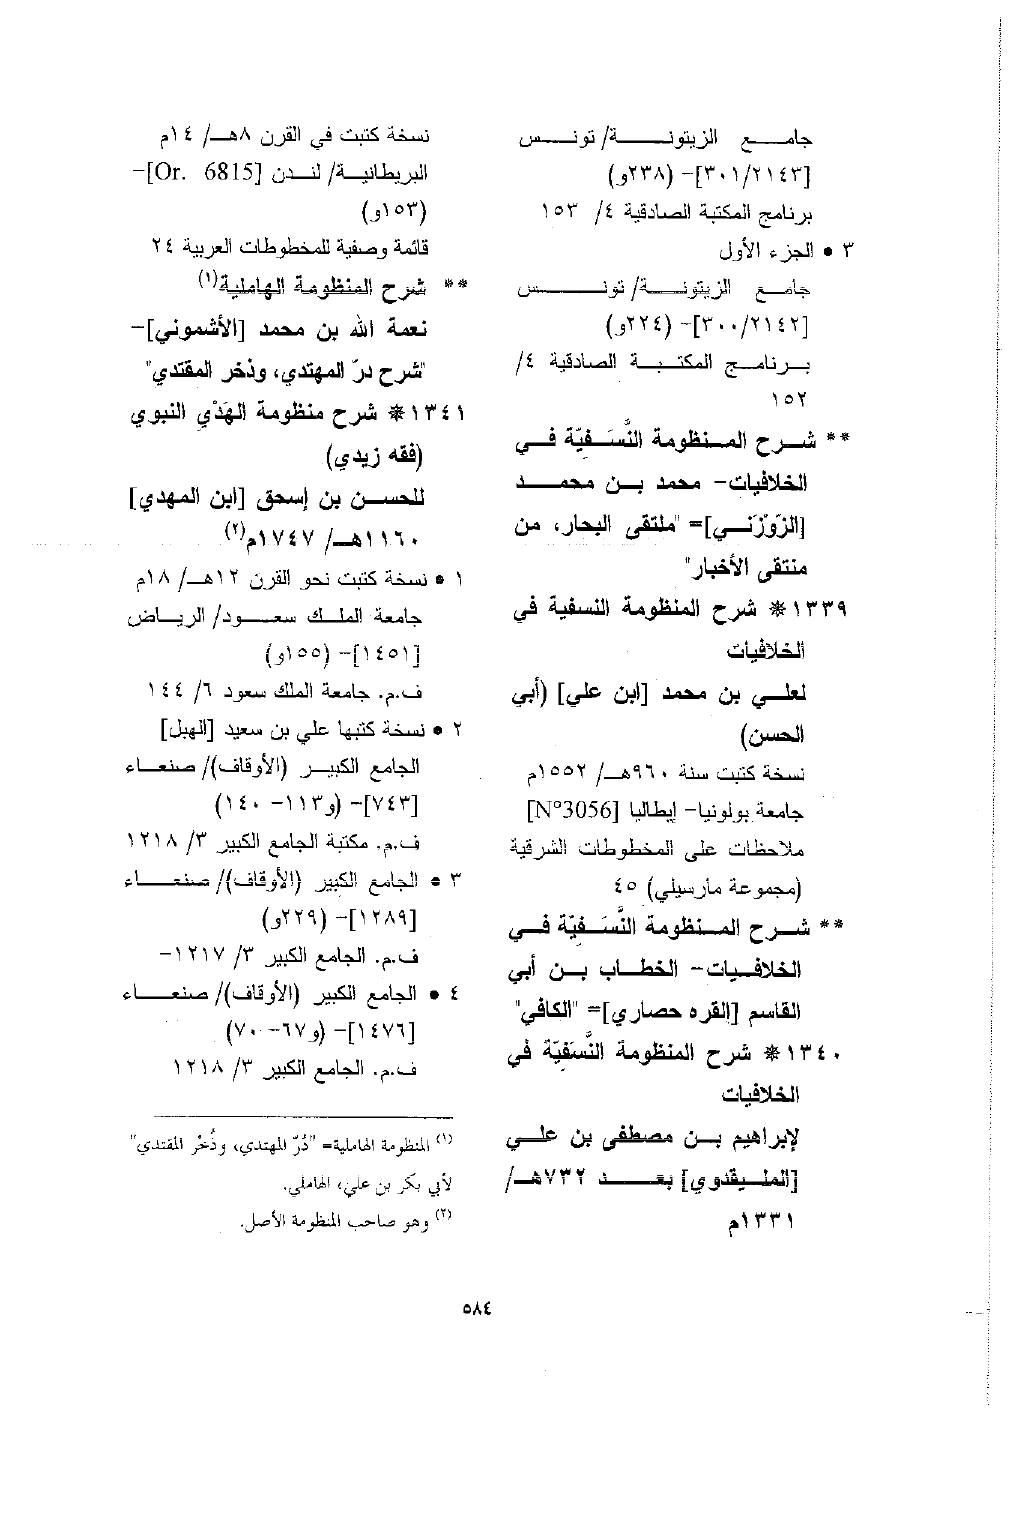 جامع الزيتونة/ تونس
[٣٠١/٢١٤٣]- (٢٣٨و)
برنامج المكتبة الصادقية ٤/ ١٥٣
٣ • الجزء الأول
جامع الزيتونة/ تونس
[٣٠٠/٢١٤٢]- (٢٢٤و)
برنامج المكتبة الصادقية ٤/
١٥٢
** شرح المنظومة النَّسَفيّة في
الخلافيات- محمد بن محمد
[الزَوْزَني]= "ملتقى البحار، من
منتقى الأخبار"
١٣٣٩* شرح المنظومة النسفية في
الخلافيات
لعلي بن محمد [ابن علي] (أبي
الحسن)
نسخة كتبت سنة ٩٦٠هـ/ ١٥٥٢م
جامعة بولونيا- إيطاليا [N°3056]
ملاحظات على المخطوطات الشرقية
(مجموعة مارسيلي) ٤٥
** شرح المنظومة النَّسَفيّة في
الخلافيات- الخطاب بن أبي
القاسم [القره حصاري]= "الكافي"
١٣٤٠* شرح المنظومة النَّسَفيّة في
الخلافيات
لإبراهيم بن مصطفى بن علي
[المليقدوي] بعد ٧٣٢هـ/
١٣٣١م
نسخة كتبت في القرن ٨هـ/ ١٤م
البريطانية/ لندن [Or. 6815]-
(١٥٣و)
قائمة وصفية للمخطوطات العربية ٢٤
** شرح المنظومة الهاملية(١)
نعمة الله بن محمد [الأشموني]-
"شرح درّ المهتدي، وذخر المقتدي"
١٣٤١* شرح منظومة الهَدْي النبوي
(فقه زيدي)
للحسن بن إسحق [ابن المهدي]
١١٦٠هـ/ ١٧٤٧م(٢)
١ • نسخة كتبت نحو القرن ١٢هـ/ ١٨م
جامعة الملك سعود/ الرياض
[١٤٥١]- (١٥٥و)
ف.م. جامعة الملك سعود ٦/ ١٤٤
٢ • نسخة كتبها علي بن سعيد [الهبل]
الجامع الكبير (الأوقاف)/ صنعاء
[٧٤٣]- (و١١٣- ١٤٠)
ف.م. مكتبة الجامع الكبير ٣/ ١٢١٨
٣ • الجامع الكبير (الأوقاف)/ صنعاء
[١٢٨٩]- (٢٢٩و)
ف.م. الجامع الكبير ٣/ ١٢١٧-
٤ • الجامع الكبير (الأوقاف)/ صنعاء
[١٤٧٦]- (و٦٧- ٧٠)
ف.م. الجامع الكبير ٣/ ١٢١٨
(١) المنظومة الهاملية= "دُرّ المهتدي، وذُخْر المقتدي"
لأبي بكر بن علي، الهاملي.
(٢) وهو صاحب المنظومة الأصل.
٥٨٤